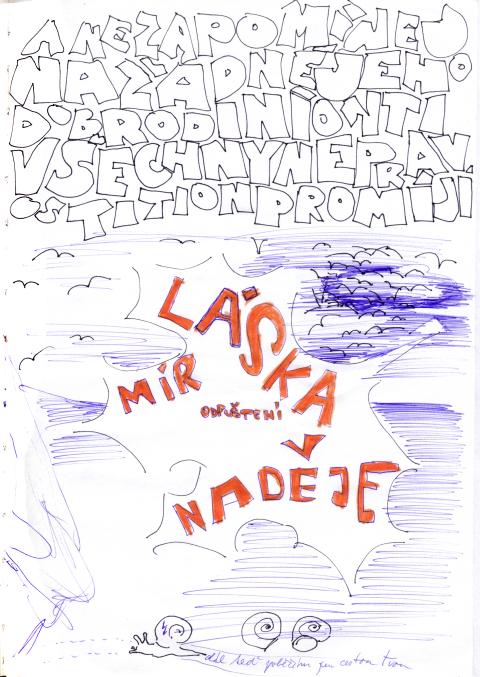 A NEZAPOMÍNEJ
NA ŽÁDNÉ JEHO
DOBRODINÍ ON TI
VŠECHNY NEPRAV
OSTI TI ON PROMÍJÍ
LÁSKA
MÍR
ODPUŠTENÍ
NADĚJE